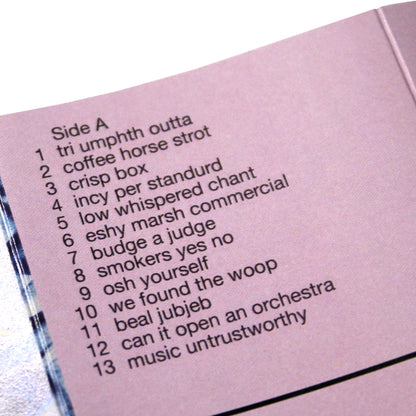 Side A
1 tri umphth outta
2 coffee horse strot
3 crisp box
4 incy per standurd
5 low whispered chant
6 eshy marsh commercial
7 budge a judge
8 smokers yes no
9 osh yourself
10 we found the woop
11 beal jubjeb
12 can it open an orchestra
13 music untrustworthy